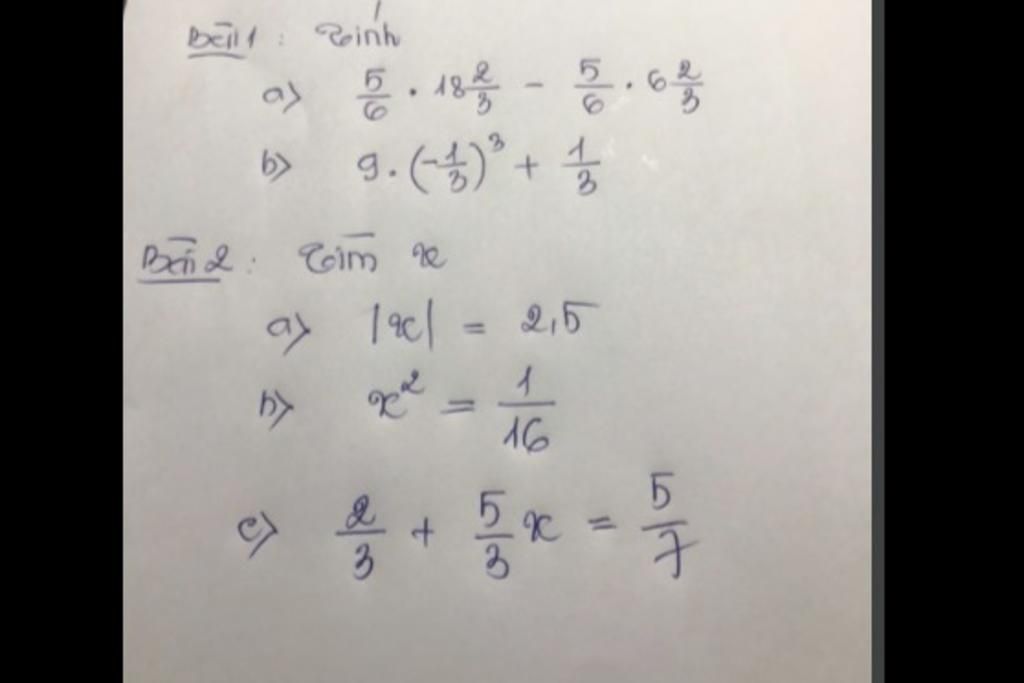 Bài 1 : Tính
a) 5/6 . 18 2/3 - 5/6 . 6 2/3
b) 9 . (-1/3)^3 + 1/3
Bài 2 : Tìm x
a) |x| = 2,5
b) x^2 = 1/16
c) 2/3 + 5/3 x = 5/7